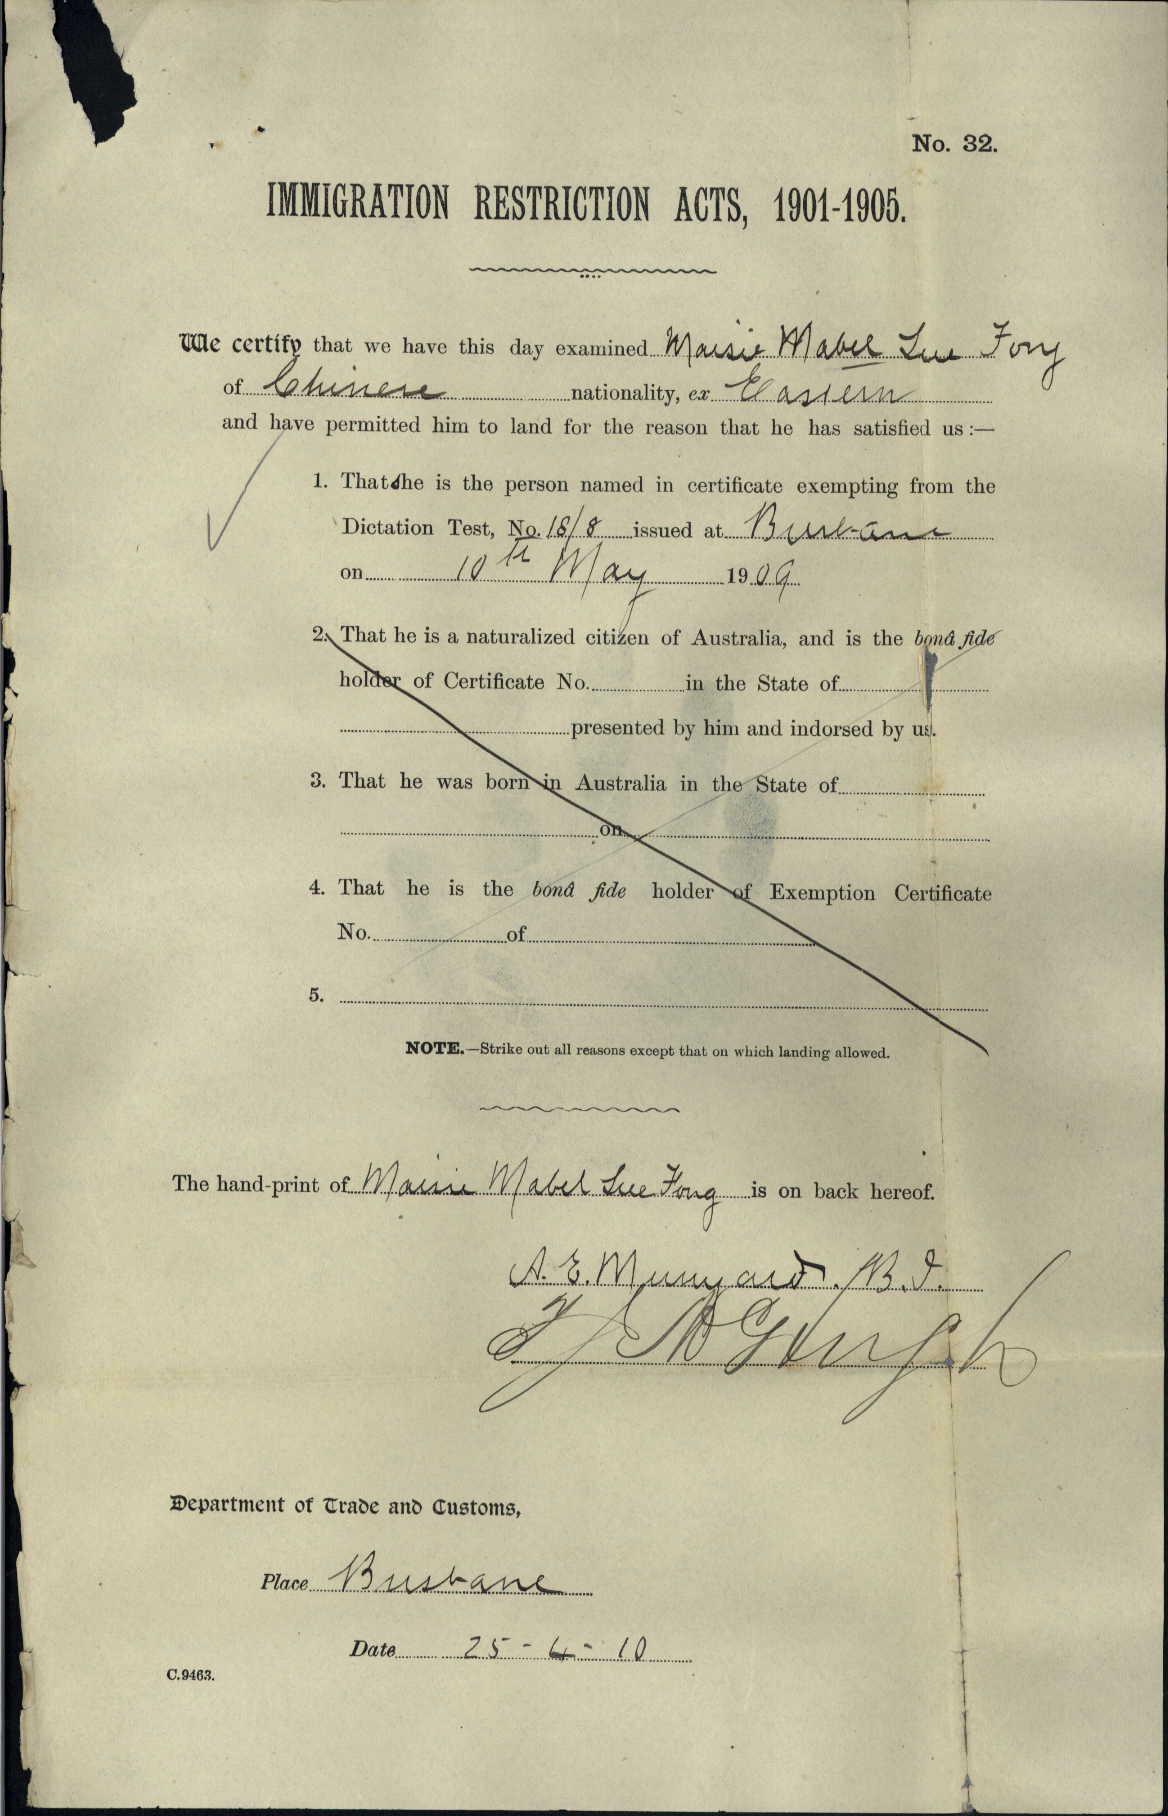 No. 32.
IMMIGRATION RESTRICTION ACTS, 1901-1905.
We certify that we have this day examined Maisie Mabel Sue Fong
of Chinese nationality, ex Eastern
and have permitted him to land for the reason that he has satisfied us :—
1. That she is the person named in certificate exempting from the
Dictation Test, No. 18/8 issued at Brisbane
on 10th May 1909
2. That he is a naturalized citizen of Australia, and is the bonâ fide
holder of Certificate No. in the State of
presented by him and indorsed by us.
3. That he was born in Australia in the State of
on
4. That he is the bonâ fide holder of Exemption Certificate
No. of
5.
NOTE.—Strike out all reasons except that on which landing allowed.
The hand-print of Maisie Mabel Sue Fong is on back hereof.
A. E. Munyard.
Department of Trade and Customs,
Place Brisbane
Date 25-4-10
C.9463.